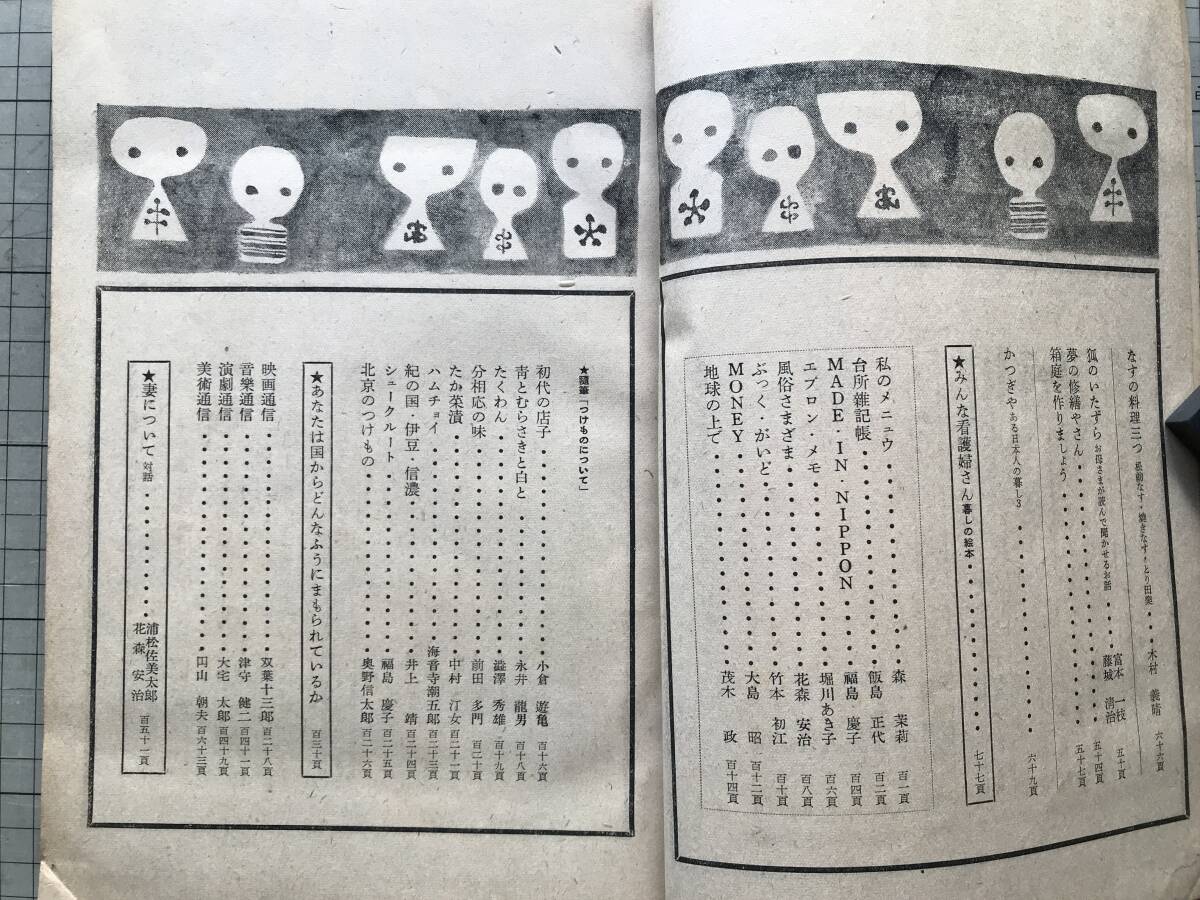 なすの料理三つ 松前なす・焼きなす・とり田楽・・木村 義晴 六十六頁
箱庭を作りましょう・・・・・・・・・・・・ 五十頁
夢の修繕やさん・・・・・・・・・・・・藤城 清治 五十四頁
狐のいたずら お母さまが読んで聞かせるお話・・富本 一枝 五十七頁
かつぎや ある日本人の暮し3・・・・・・・・ 六十九頁
★みんな看護婦さん 暮しの絵本・・・・・・・・ 七十七頁
私のメニュウ・・・・・・・・森 茉莉 百一頁
台所雑記帳・・・・・・・・飯島 正代 百二頁
MADE・IN NIPPON・・・・福島 慶子 百四頁
エプロン・メモ・・・・・・・・堀川あき子 百六頁
風俗さまざま・・・・・・・・花森 安治 百八頁
ぶっく・がいど・・・・・・・・竹本 初江 百十頁
MONEY・・・・・・・・大島 昭 百十二頁
地球の上で・・・・・・・・茂木 政 百十四頁
★随筆「つけものについて」
初代の店子・・・・・・・・小倉 遊亀 百十六頁
青とむらさきと白と・・・・・・・・永井 龍男 百十八頁
たくわん・・・・・・・・澁澤 秀雄 百十九頁
分相応の味・・・・・・・・前田 多門 百二十頁
たか菜漬・・・・・・・・中村 汀女 百二十一頁
ハムチョイ・・・・・・・・海音寺潮五郎 百二十三頁
紀の国・伊豆・信濃・・・・・・・・井上 靖 百二十四頁
シュークルート・・・・・・・・福島 慶子 百二十五頁
北京のつけもの・・・・・・・・奥野信太郎 百二十六頁
★あなたは国からどんなふうにまもられているか 百三十頁
映画通信・・・・・・・・双葉十三郎 百二十八頁
音樂通信・・・・・・・・津守 健二 百四十一頁
演劇通信・・・・・・・・大宅 太郎 百四十九頁
美術通信・・・・・・・・円山 朝夫 百六十三頁
★妻について 対話・・・・・・・・浦松佐美太郎 花森 安治 百五十一頁